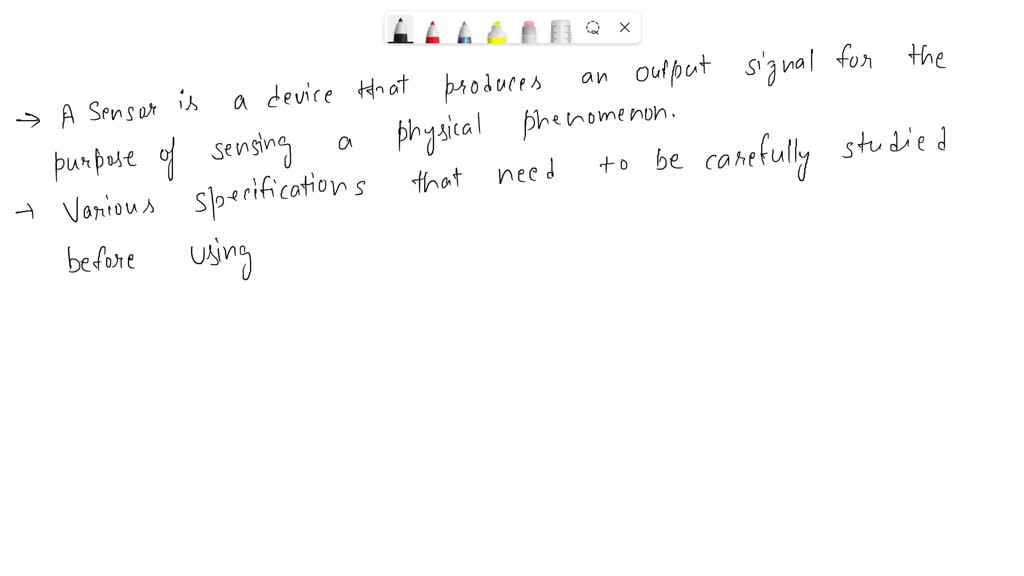 → A Sensor is a device that produces an output signal for the
purpose of sensing a physical phenomenon.
→ Various specifications that need to be carefully studied
before using